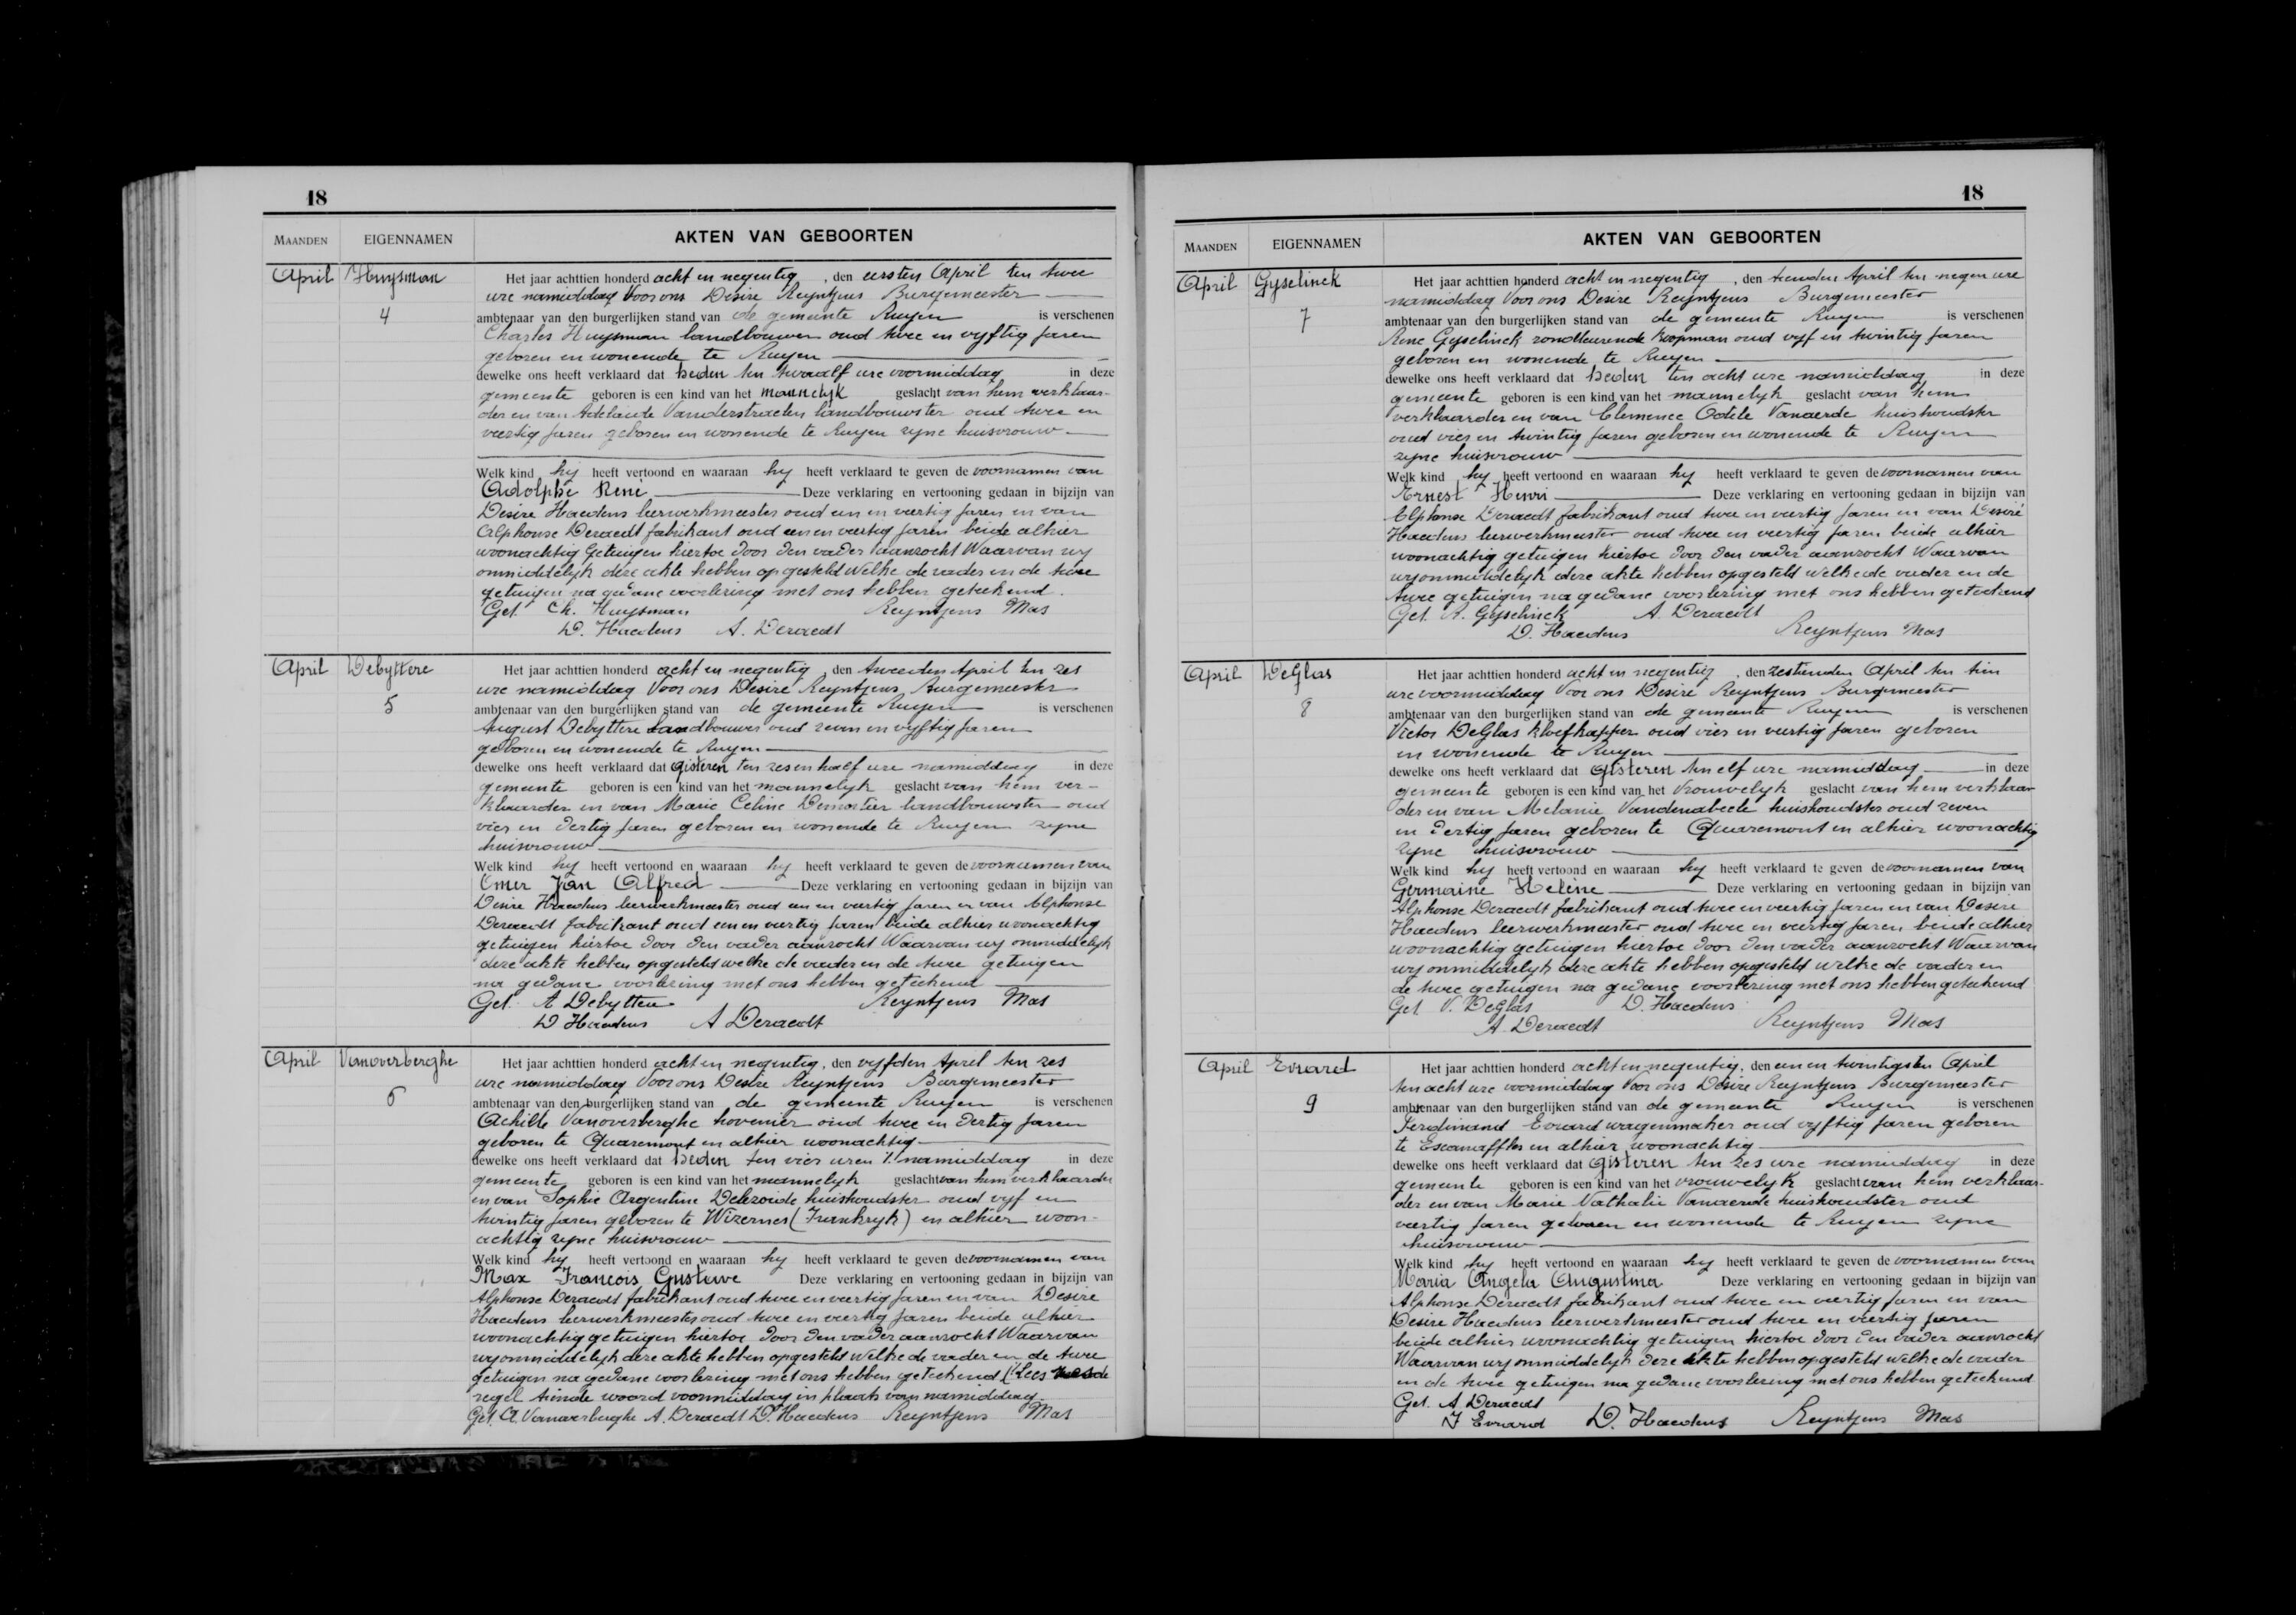 18
MAANDEN EIGENNAMEN AKTEN VAN GEBOORTEN
April Huysman
4
Het jaar achttien honderd acht en negentig, den eersten April ten twee
ure namiddag Voor ons Desiré Reyntjens Burgemeester
ambtenaar van den burgerlijken stand van de gemeente Ruyen is verschenen
Charles Huysman landbouwer oud twee en vyftig jaren
geboren en wonende te Ruyen
dewelke ons heeft verklaard dat heden ten twaalf ure voormiddag in deze
gemeente geboren is een kind van het mannelyk geslacht van hem verklaar-
der en van Adelaide Vanderstraeten landbouwster oud twee en
veertig jaren geboren en wonende te Ruyen zyne huisvrouw
Welk kind hij heeft vertoond en waaraan hy heeft verklaard te geven de voornamen van
Adolphe René Deze verklaring en vertooning gedaan in bijzijn van
Desiré Haedens leerwerkmeester oud een en veertig jaren en van
Alphonse Deraedt fabrikant oud een en veertig jaren beide alhier
woonachtig Getuigen hiertoe door den vader aanzocht Waarvan wy
onmiddelyk deze akte hebben opgesteld Welke de vader en de twee
getuigen na gedane voorlezing met ons hebben geteekend.
Get. Ch. Huysman Reyntjens Mas
D. Haedens A. Deraedt
April Debyttere
5
Het jaar achttien honderd acht en negentig, den tweeden April ten zes
ure namiddag Voor ons Desiré Reyntjens Burgemeester
ambtenaar van den burgerlijken stand van de gemeente Ruyen is verschenen
August Debyttere Landbouwer oud zeven en vyftig jaren
geboren en wonende te Ruyen
dewelke ons heeft verklaard dat Gisteren ten zes en half ure namiddag in deze
gemeente geboren is een kind van het mannelyk geslacht van hem ver-
klaarder en van Marie Celine Demortier landbouwster oud
vier en dertig jaren geboren en wonende te Ruyen zyne
huisvrouw
Welk kind hy heeft vertoond en waaraan hy heeft verklaard te geven de voornamen van
Omer Jan Alfred Deze verklaring en vertooning gedaan in bijzijn van
Desire Haedens leerwerkmeester oud een en veertig jaren en van Alphonse
Deraedt fabrikant oud een en veertig jaren beide alhier woonachtig
getuigen hiertoe door den vader aanzocht Waarvan wy onmiddelyk
deze akte hebben opgesteld welke de vader en de twee getuigen
na gedane voorlezing met ons hebben geteekend
Get. A Debyttere Reyntjens Mas
D Haedens A Deraedt
April Vanoverberghe
6
Het jaar achttien honderd acht en negentig, den vyfden April ten zes
ure namiddag Voor ons Desire Reyntjens Burgemeester
ambtenaar van den burgerlijken stand van de gemeente Ruyen is verschenen
Achille Vanoverberghe hovenier oud twee en dertig jaren
geboren te Quaremont en alhier woonachtig
dewelke ons heeft verklaard dat heden ten vier uren namiddag in deze
gemeente geboren is een kind van het mannelyk geslacht van hem verklaarder
en van Sophie Argentine Delezoide huishoudster oud vyf en
twintig jaren geboren te Wizernes (Frankryk) en alhier woon-
achtig zyne huisvrouw
Welk kind hy heeft vertoond en waaraan hy heeft verklaard te geven de voornamen van
Max Francois Gustave Deze verklaring en vertooning gedaan in bijzijn van
Alphonse Deraedt fabrikant oud twee en veertig jaren en van Desire
Haedens leerwerkmeester oud twee en veertig jaren beide alhier
woonachtig getuigen hiertoe door den vader aanzocht Waarvan
wy onmiddelyk deze akte hebben opgesteld Welke de vader en de twee
getuigen na gedane voorlezing met ons hebben geteekend (Lees
regel tiende woord voormiddag in plaats van namiddag.
Get. A. Vanoverberghe A. Deraedt D. Haedens Reyntjens Mas
18
MAANDEN EIGENNAMEN AKTEN VAN GEBOORTEN
April Gyselinck
7
Het jaar achttien honderd acht en negentig, den tienden April ten negen ure
namiddag Voor ons Desire Reyntjens Burgemeester
ambtenaar van den burgerlijken stand van de gemeente Ruyen is verschenen
Rene Gyselinck rondleurende koopman oud vyf en twintig jaren
geboren en wonende te Ruyen
dewelke ons heeft verklaard dat heden ten acht ure namiddag in deze
gemeente geboren is een kind van het mannelyk geslacht van hem
verklaarder en van Clemence Odile Vanaerde huishoudster
oud vier en twintig jaren geboren en wonende te Ruyen
zyne huisvrouw
Welk kind hy heeft vertoond en waaraan hy heeft verklaard te geven de voornamen van
Ernest Henri Deze verklaring en vertooning gedaan in bijzijn van
Alphonse Deraedt fabrikant oud twee en veertig jaren en van Desiré
Haedens leerwerkmeester oud twee en veertig jaren beide alhier
woonachtig getuigen hiertoe door den vader aanzocht Waarvan
wy onmiddelyk deze akte hebben opgesteld welke de vader en de
twee getuigen na gedane voorlezing met ons hebben geteekend
Get. R. Gyselinck A. Deraedt
D. Haedens Reyntjens Mas
April DeGlas
8
Het jaar achttien honderd acht en negentig, den zestienden April ten tien
ure voormiddag Voor ons Desiré Reyntjens Burgemeester
ambtenaar van den burgerlijken stand van de gemeente Ruyen is verschenen
Victor DeGlas kloefkapper oud vier en veertig jaren geboren
en wonende te Ruyen
dewelke ons heeft verklaard dat Gisteren ten elf ure namiddag in deze
gemeente geboren is een kind van het Vrouwelyk geslacht van hem verklaar-
der en van Melanie Vandenabeele huishoudster oud zeven
en dertig jaren geboren te Quaremont en alhier woonachtig
zyne huisvrouw
Welk kind hy heeft vertoond en waaraan hy heeft verklaard te geven de voornamen van
Germaine Helène Deze verklaring en vertooning gedaan in bijzijn van
Alphonse Deraedt fabrikant oud twee en veertig jaren en van Desire
Haedens leerwerkmeester oud twee en veertig jaren beide alhier
woonachtig getuigen hiertoe door den vader aanzocht Waarvan
wy onmiddelyk deze akte hebben opgesteld welke de vader en
de twee getuigen na gedane voorlezing met ons hebben geteekend
Get V. DeGlas D. Haedens
A. Deraedt Reyntjens Mas
April Evrard
9
Het jaar achttien honderd acht en negentig, den een en twintigsten April
ten acht ure voormiddag Voor ons Desire Reyntjens Burgemeester
ambtenaar van den burgerlijken stand van de gemeente Ruyen is verschenen
Ferdinand Evrard wagenmaker oud vyftig jaren geboren
te Escanaffles en alhier woonachtig
dewelke ons heeft verklaard dat Gisteren ten zes ure namiddag in deze
gemeente geboren is een kind van het vrouwelyk geslacht van hem verklaar-
der en van Marie Nathalie Vanaerde huishoudster oud
veertig jaren geboren en wonende te Ruyen zyne
huisvrouw
Welk kind hy heeft vertoond en waaraan hy heeft verklaard te geven de voornamen van
Maria Angela Augustina Deze verklaring en vertooning gedaan in bijzijn van
Alphonse Deraedt fabrikant oud twee en veertig jaren en van
Desire Haedens leerwerkmeester oud twee en veertig jaren
beide alhier woonachtig getuigen hiertoe door den vader aanzocht
Waarvan wy onmiddelyk deze akte hebben opgesteld welke de vader
en de twee getuigen na gedane voorlezing met ons hebben geteekend
Get. A Deraedt
F Evrard D. Haedens Reyntjens Mas